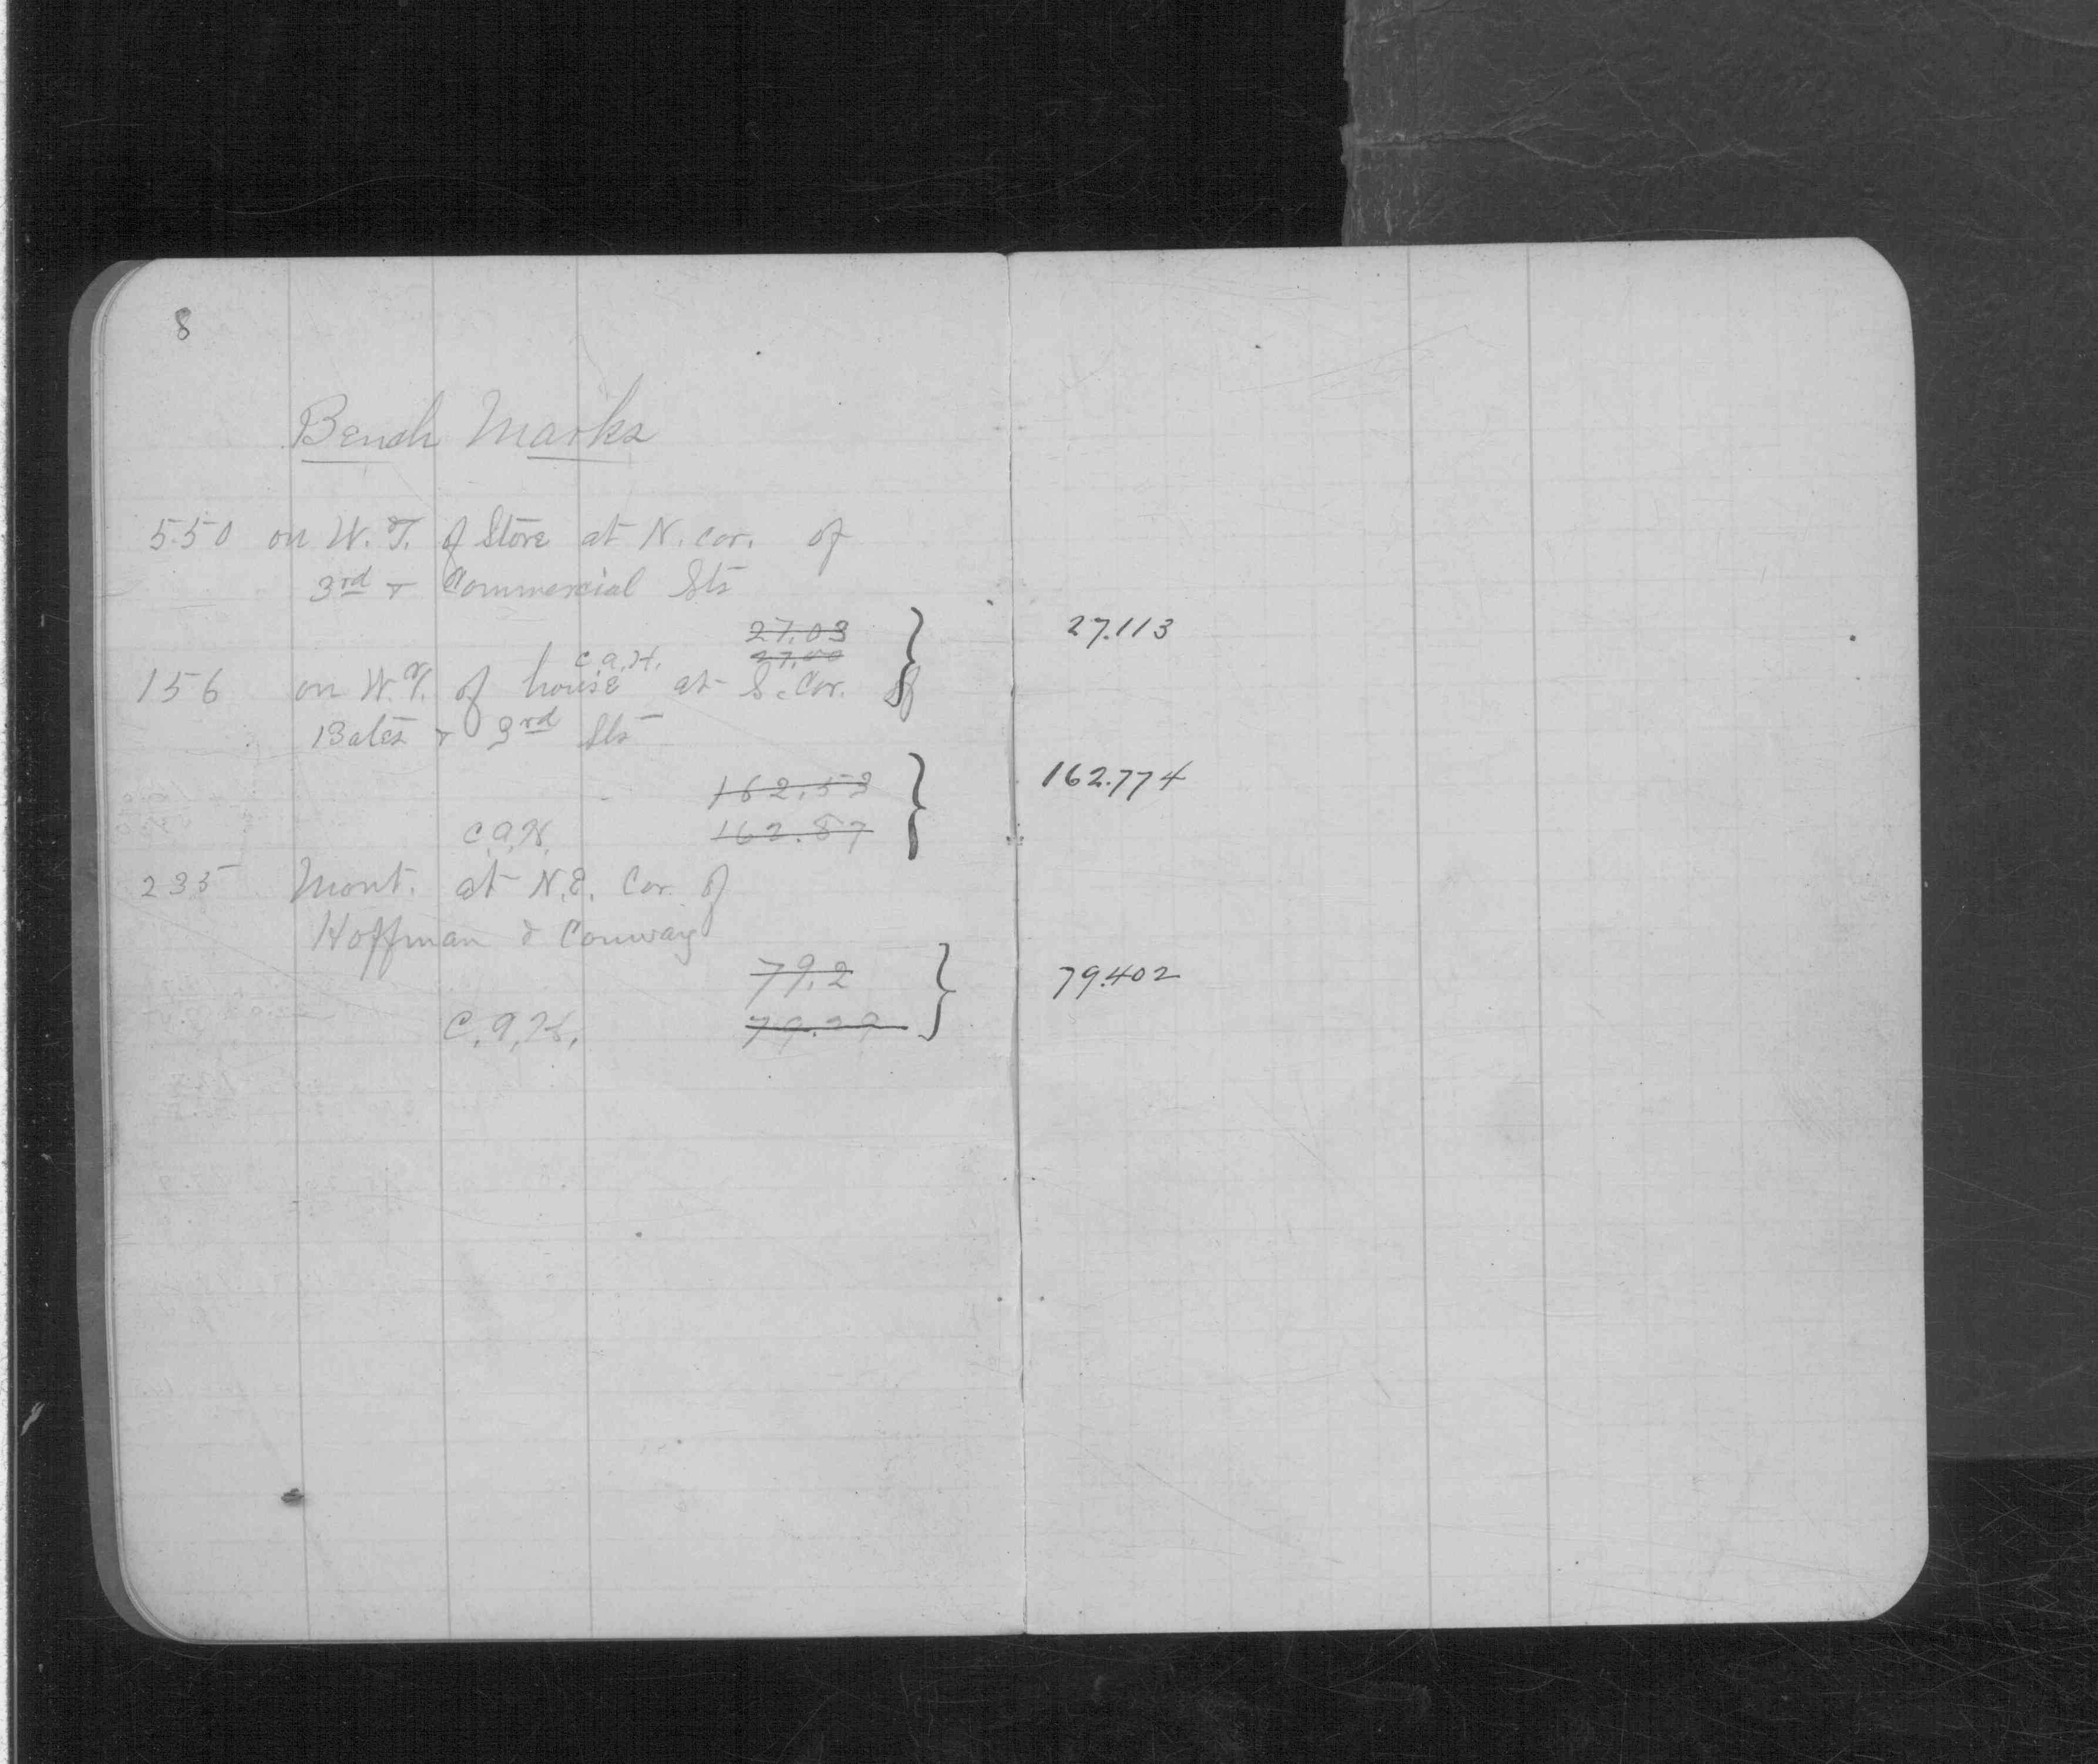 8
Bench Marks
550 on W.T. of Store at N. cor. of
3rd & Commercial Sts
27.03 27.113
C.A.H. 27.00
156 on W.T. of house at S. Cor. of
Bates & 3rd Sts
162.53 162.774
C.A.H. 162.87
235 Mont. at N.E. Cor. of
Hoffman & Conway
79.2 79.402
C.A.H. 79.29